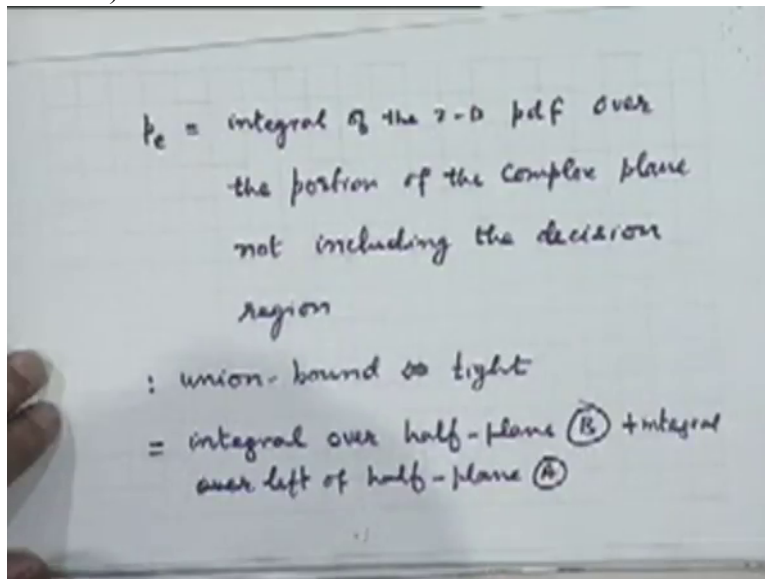 Pe = integral of the 2-D pdf over
the portion of the complex plane
not including the decision
region
: union-bound is tight
= integral over half-plane (B) + integral
over left of half-plane (A)